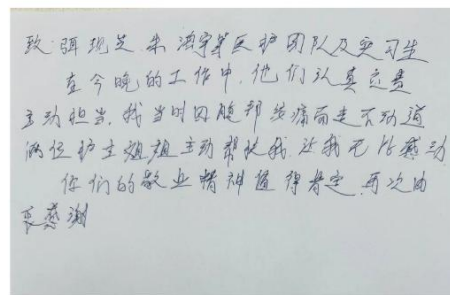 致:驿现芝.朱海宇等医护团队及实习生
在今晚的工作中,他们认真负责
主动担当.我当时因腿部发痛而走不动道
两位护士姐姐主动帮扶我.让我无比感动
你们的敬业精神值得肯定.再次由
衷感谢